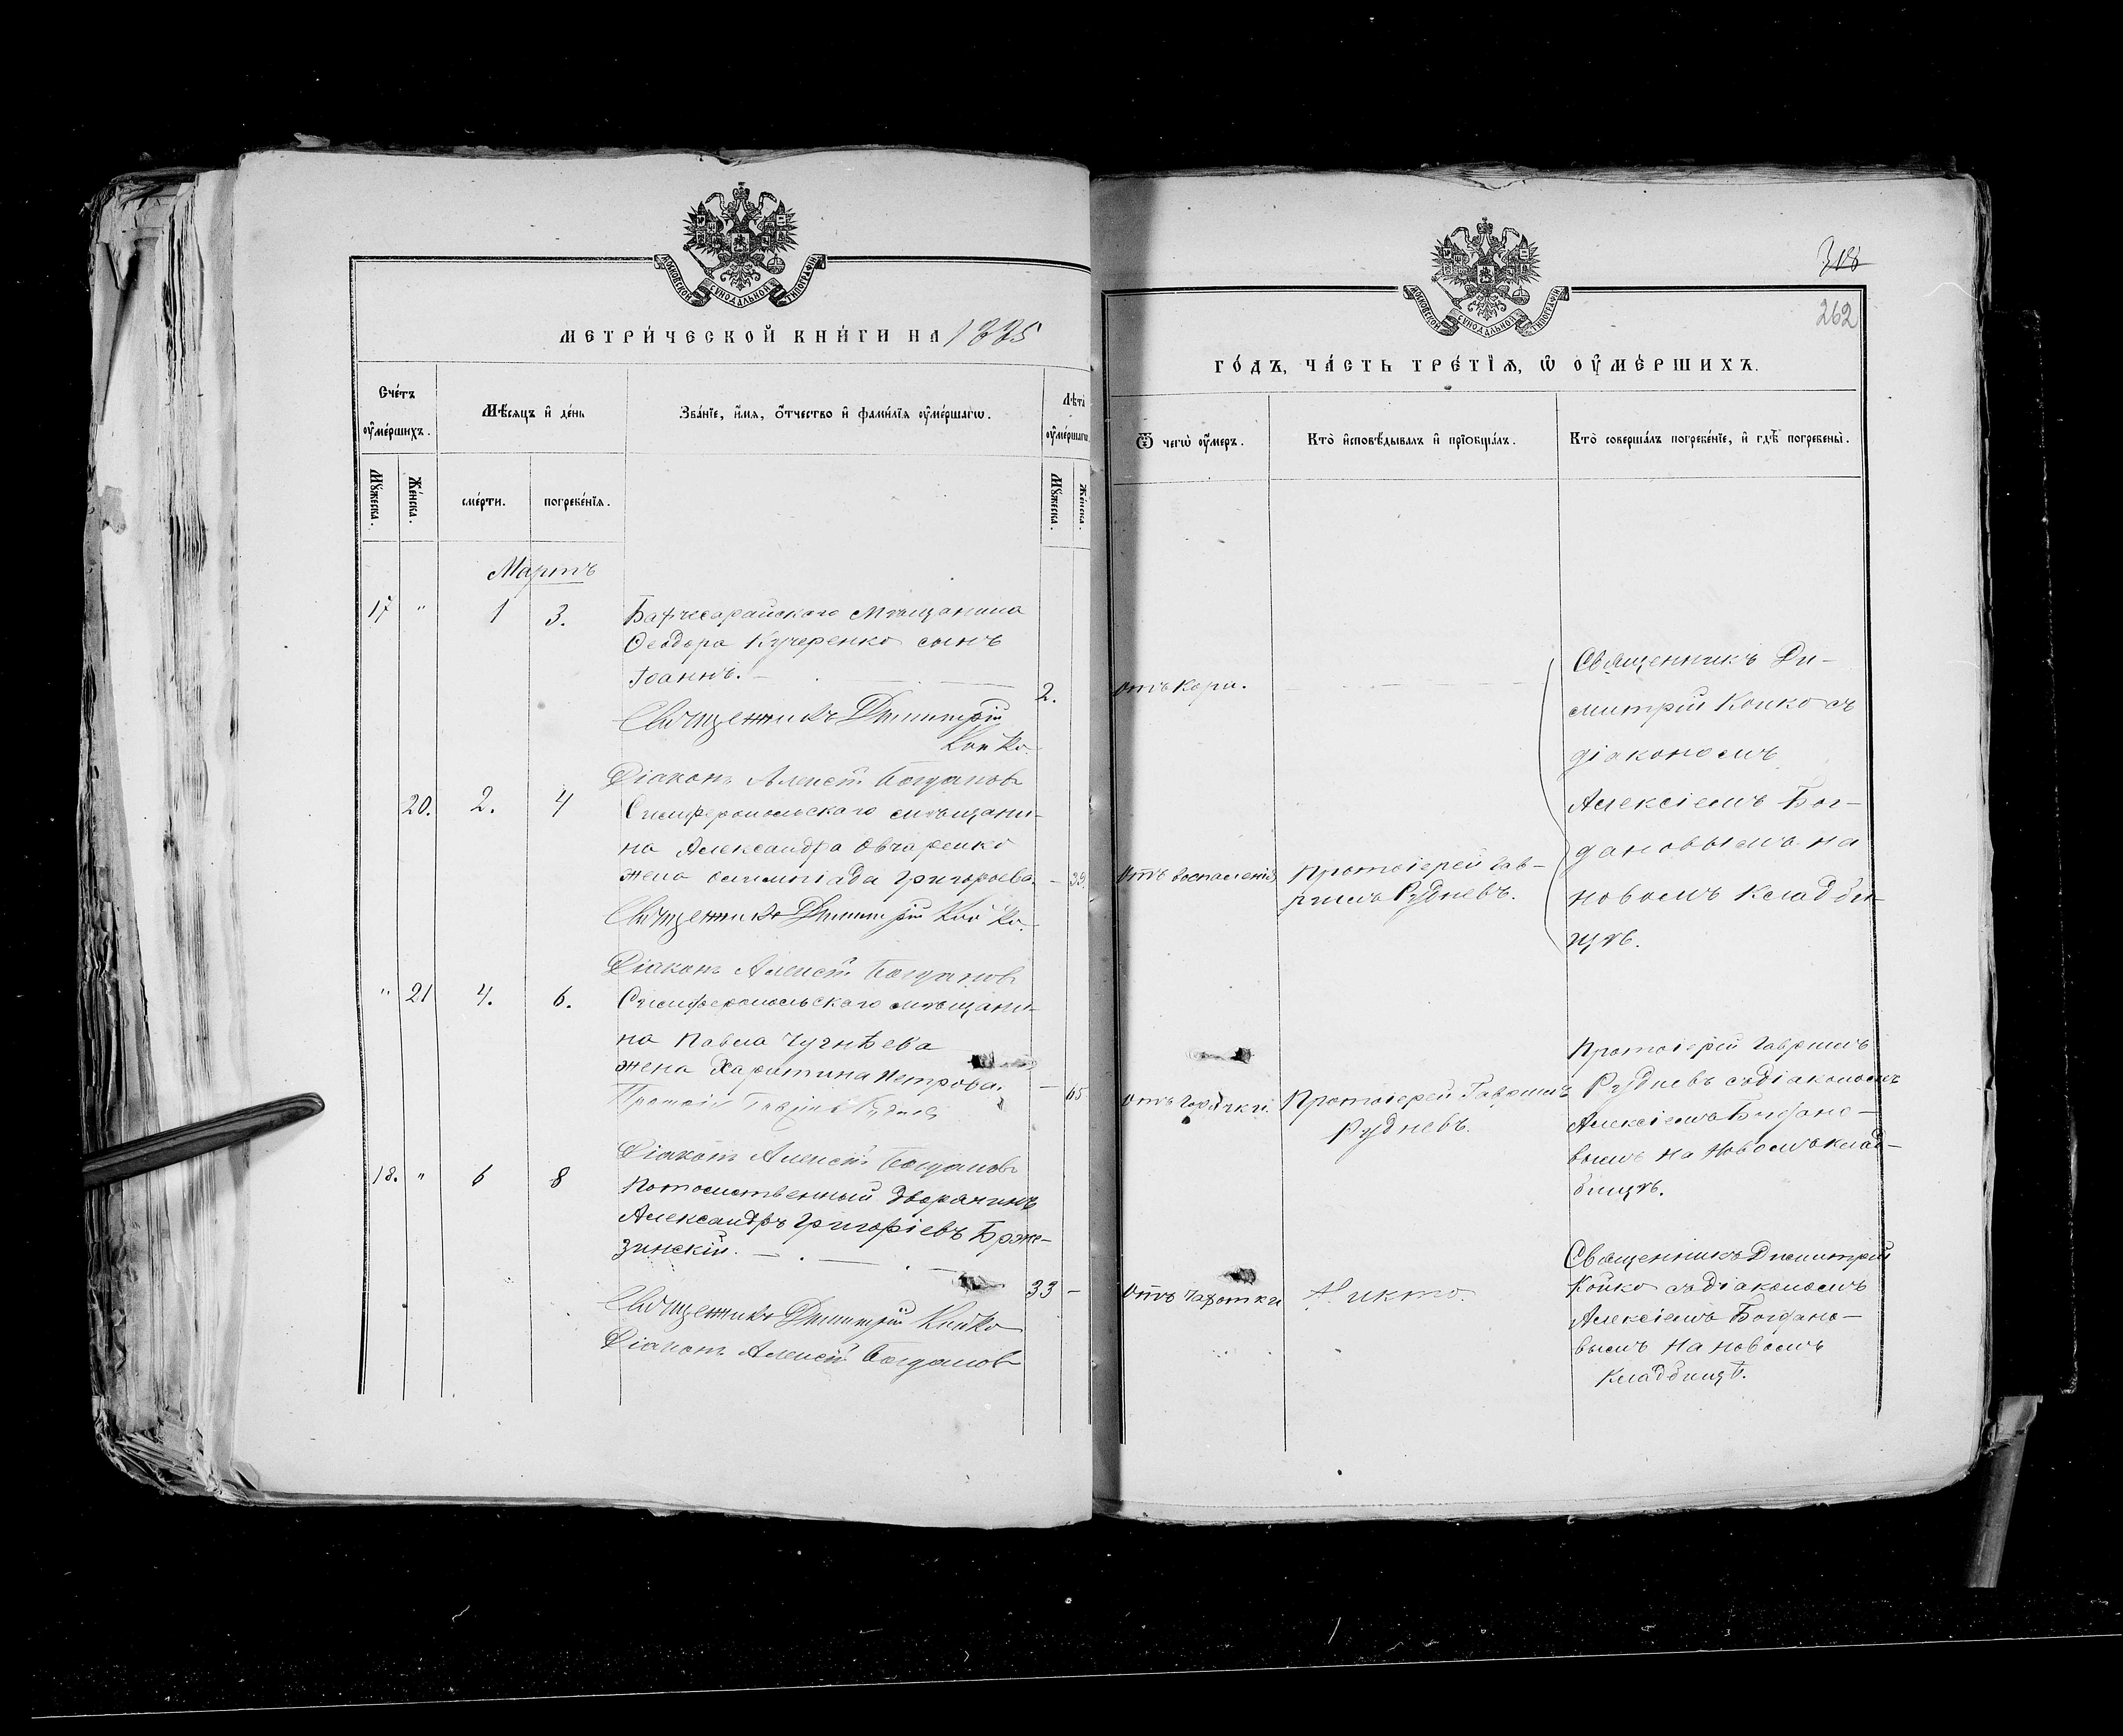 МОСКОВСКОЙ СѴНОДАЛЬНОЙ ТИПОГРАФІИ
МЕТРИ́ЧЕСКОЙ КНИ́ГИ НА 1885
Сче́тъ оу҆ме́ршихъ.
Мꙋ́жеска.
Же́нска.
Мѣ́сяцъ и҆ де́нь
сме́рти.
погребе́нїѧ.
Зва́нїе, и҆́мѧ, ѻ҆́тчество и҆ фами́лїѧ оу҆ме́ршагѡ.
Лѣ́та оу҆ме́ршагѡ
Мꙋ́жеска.
Же́нска.
Мартъ
17 " 1 3. Бахчесарайскаго Мѣщанина
Ѳеодора Кучеренко сынъ
Іоаннъ. 2.
Священникъ Димитрій
Койко.
Діаконъ Алексѣй Богданов
20. 2. 4 Симферопольскаго мѣщани-
на Александра Овчаренко
жена Олимпіада Григорьева. – 39.
Священникъ Димитрій Койко.
Діаконъ Алексѣй Богданов
" 21 4. 6. Симферопольскаго мѣщани-
на Павла
жена Харитина Петрова. – 65
Діаконъ Алексѣй Богданов
18. " 6 8 Потомственный дворянинъ
Александръ Григоріевъ Брже-
зинскій. 33 –
Священникъ Димитрій Койко
Діаконъ Алексѣй Богданов
МОСКОВСКОЙ СѴНОДАЛЬНОЙ ТИПОГРАФІИ
318
262
ГО́ДЪ, ЧА́СТЬ ТРЕ́ТЇѦ, Ѡ҆ ОУ҆МЕ́РШИХЪ.
Ѿ чегѡ̀ оу҆́меръ.
Кто̀ и҆сповѣ́дывалъ и҆ прїобща́лъ.
Кто̀ соверша́лъ погребе́нїе, и҆ гдѣ̀ погребены̀.
Отъ кори.
Священникъ Ди-
митрій Койко съ
діакономъ
Алексіемъ Бог-
дановымъ на
новомъ кладби-
щѣ.
Отъ воспаленія Протоіерей Гав-
ріилъ Рудневъ.
Отъ горячки. Протоіерей Гавріилъ
Рудневъ.
Протоіерей Гавріилъ
Рудневъ съ діакономъ
Алексіемъ Богдано-
вымъ на новомъ клад-
бищѣ.
Отъ чахотки Никто.
Священникъ Димитрій
Койко съ діакономъ
Алексіемъ Богдано-
вымъ на новомъ
кладбищѣ.